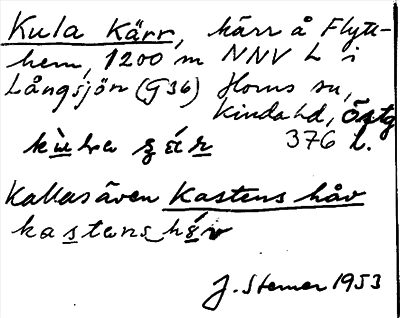 Kula Kärr, kärr å Flytt-
hem, 1200 m NNV L i
Långsjön (G36) Horns sn,
Kinda hd, Östg
376 L.
Kallas även Kastens håv
kastens håv
J. Sterner 1953